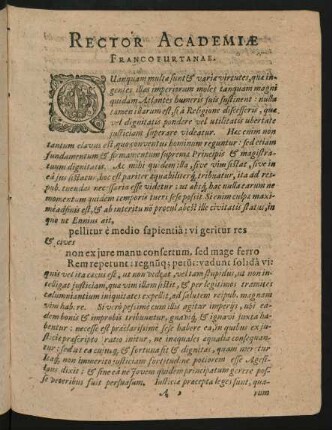 RECTOR ACADEMIÆ
FRANCOFURTANAE.
QUanquam multæ sunt & variæ virtutes, quæ in-
gentes illas imperiorum moles tanquam magni
quidam Atlantes humeris suis sustinent: nulla
tamen illarum est, si à Religione discesseris, quæ
vel dignitatis pondere vel utilitatis ubertate
justiciam superare videatur. Hæc enim non
tantum clavus est, quo conventus hominum reguntur: sed etiam
fundamentum & firmamentum supremæ Principis & magistra-
tuum dignitatis. Ac mihi quidem illa, sive vim
jus istius, hoc est pariter æquabiliterq́; tribuatur, ita ad res-
pub. tuendas necessaria esse videtur: ut absq́; hac nulla earum ne
momentum quidem temporis stare possit. Si enim culpa maxi-
ma & ab interitu nō procul abest ille civitatis status, in
quo ut Ennius ait,
pellitur è medio sapientia: vi geritur res
& cives
non ex jure manu consertum, sed mage ferro
Rem repetunt: regnūq; petūt: vadunt solida vi:
quis vel ita cæcus est, ut non videat, vel tam stupidus, ut non in-
telligat justiciam, quæ vim illam sistit, & per legitimos tramites
calumniantium iniquitates expellit, ad salutem reipub. magnam
vim habere. Si verò pessimè cum illis agitur imperiis, ubi ea-
dem bonis & improbis tribuuntur, gnavíq; & ignavi juxta ha-
bentur: necesse est præclarissimè sese habere ea, in quibus ex ju-
sticiæ præscripto ratio initur, ne inæquales æqualia consequan-
tur, sed ea cuiq; & fortuna sit & dignitas, quam meretur
non immeritò justiciam fortitudine potiorem esse Agesi-
laus dixit: & sine ea ne Iovem quidem principatum gerere pos-
se veteribus fuit persuasum. Iusticiæ præcepta leges sunt, qua-
A 2 rum